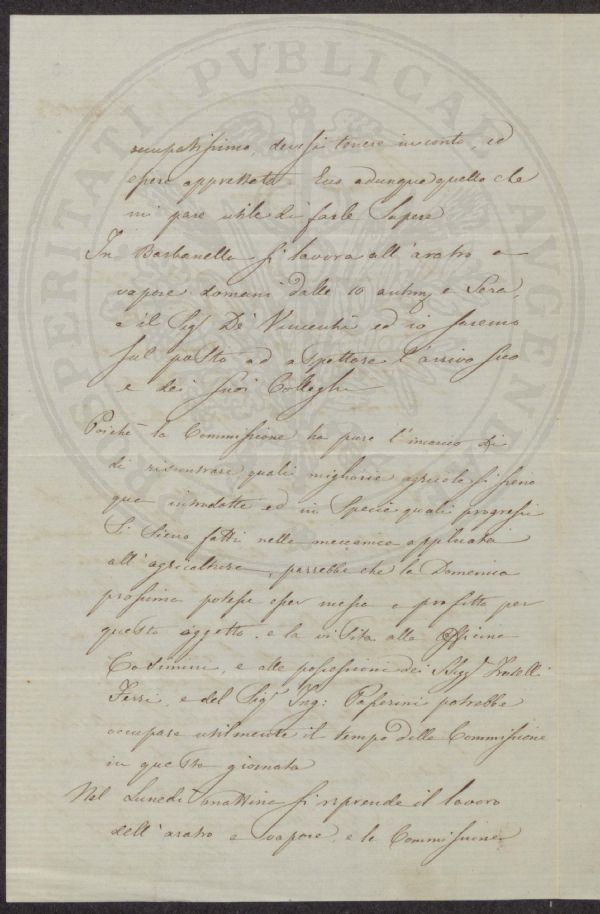 PROSPERITATI PVBLICAE AVGENDAE
occupatissimo, devesi tenere in conto, ed
essere apprezzata. Ecco adunque quello che
mi pare utile di farle sapere
In Barbanella si lavora all'aratro a
vapore domani dalle 10 antimᵉ a sera,
e il Sigʳ De' Vincenti ed io saremo
sul posto ad aspettare l'arrivo suo
e dei suoi Colleghi
Poichè la Commissione ha pure l'incarico di
di riscontrare quali migliorie agricole si sieno
qua introdotte ed in specie quali progressi
si sieno fatti nella meccanica applicata
all'agricoltura, parrebbe che la Domenica
prossima potesse esser messa a profitto per
questo oggetto. e la visita alle Officine
Cosimini, e alle possessioni dei Sigg.ʳⁱ Fratelli
Ferri, e del Sigʳ Ing: Passerini potrebbe
occupare utilmente il tempo della Commissione
in questa giornata
Nel Lunedì mattina si riprende il lavoro
dell'aratro a vapore, e la Commissione